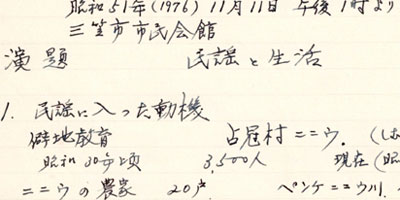 昭和51年(1976) 11月11日 午後1時より
三笠市市民会館
演題 民謡と生活
1. 民謡に入った動機
僻地教育 占冠村ニニウ.
昭和30年頃 3,500人 現在(昭
ニニウの農家 20戸 ペンケニニウ川.